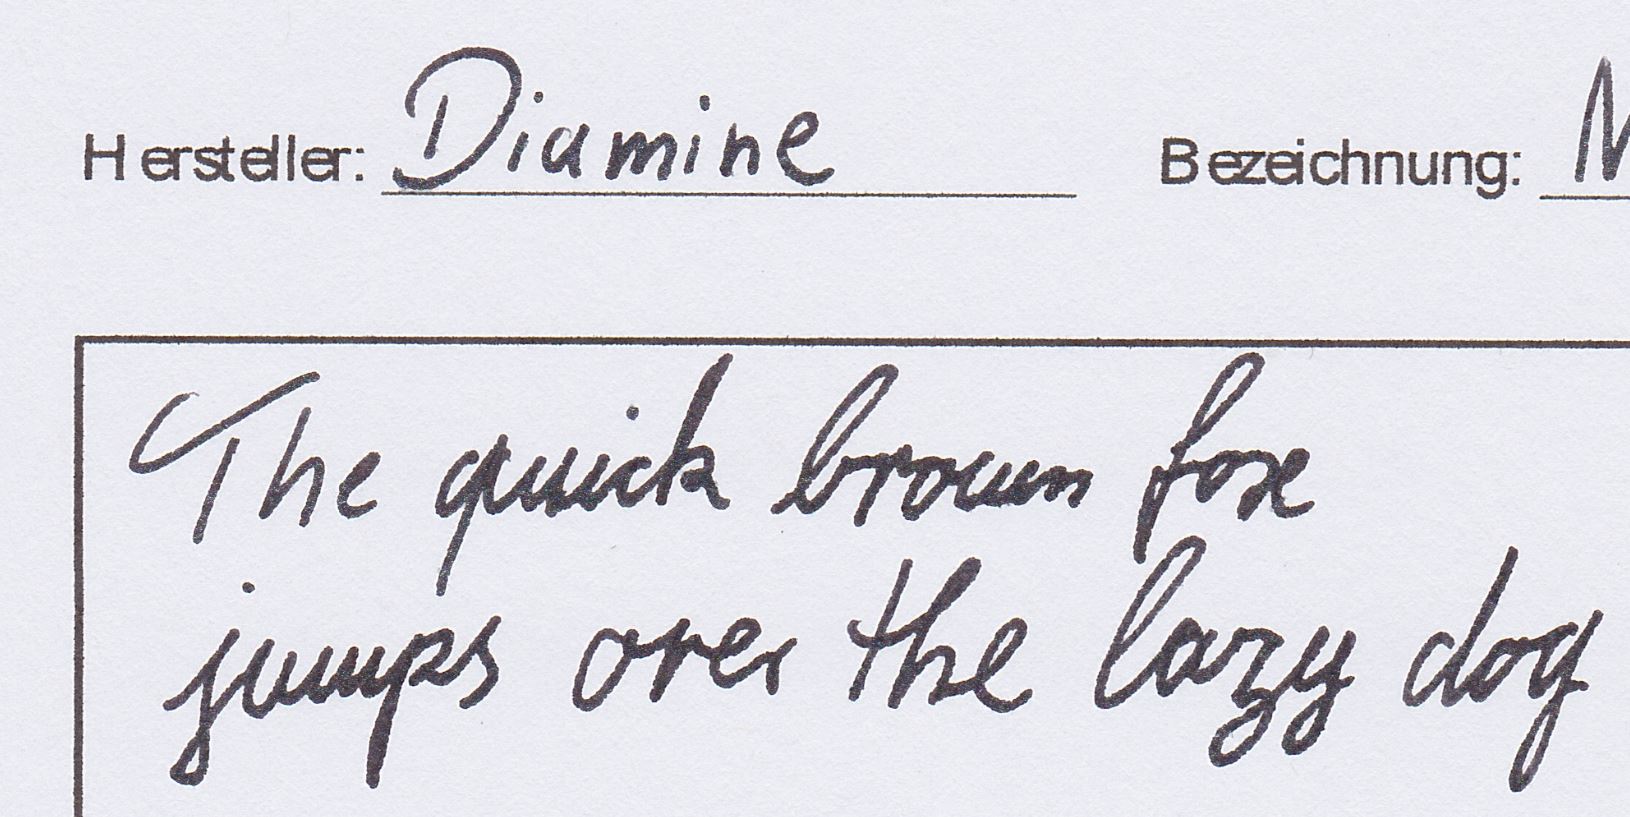 Hersteller: Diamine Bezeichnung:
The quick brown fox
jumps over the lazy dog